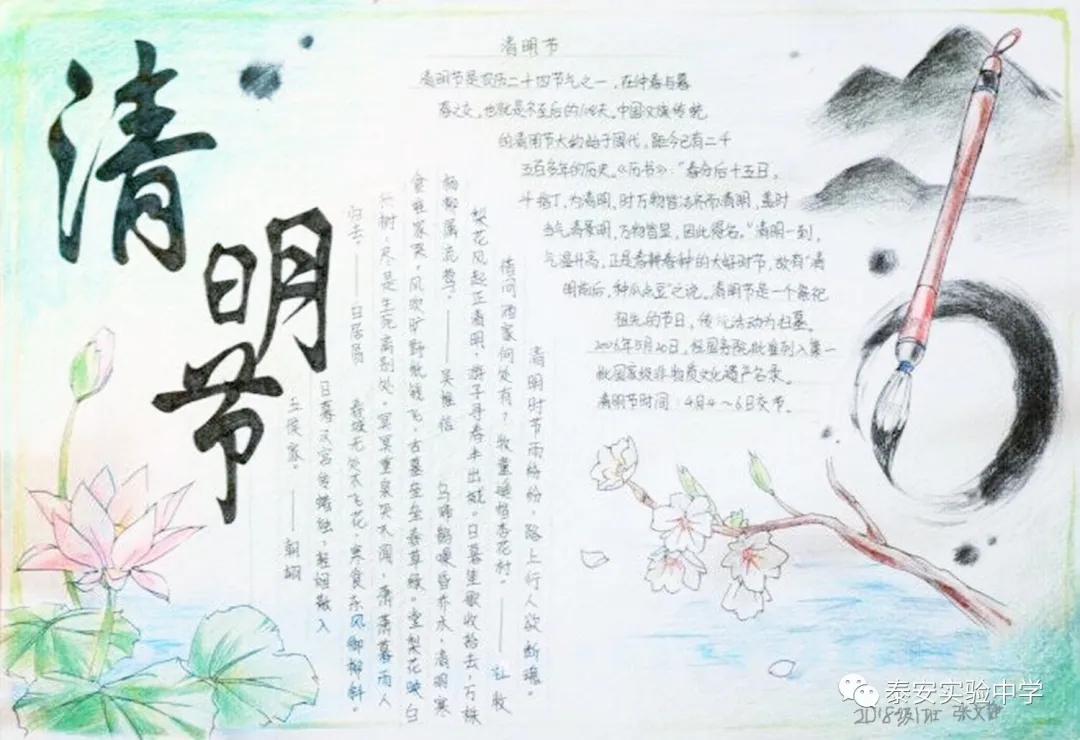 清明节
清明节
清明节是农历二十四节气之一，在仲春与暮
春之交，也就是冬至后的108天。中国汉族传统
的清明节大约始于周代，距今已有二千
五百多年的历史。《历书》："春分后十五日，
斗指丁，为清明，时万物皆洁齐而清明，盖时
当气清景明，万物皆显，因此得名。"清明一到，
气温升高，正是春耕春种的大好时节，故有"清
明前后，种瓜点豆"之说。清明节是一个祭祀
祖先的节日，传统活动为扫墓。
2006年5月20日，经国务院批准列入第一
批国家级非物质文化遗产名录。
清明节时间：4月4～6日交节。
清明时节雨纷纷，路上行人欲断魂。
借问酒家何处有？牧童遥指杏花村。——杜牧
梨花风起正清明，游子寻春半出城。日暮笙歌收拾去，万株
杨柳属流莺。——吴惟信 乌啼鹊噪昏乔木，清明寒
食谁家哭。风吹旷野纸钱飞，古墓垒垒春草绿。棠梨花映白
杨树，尽是生死离别处。冥冥重泉哭不闻，萧萧暮雨人
归去。——白居易 春城无处不飞花，寒食东风御柳斜。
日暮汉宫传蜡烛，轻烟散入
五侯家。——朝翊
泰安实验中学
2018级1班 张文